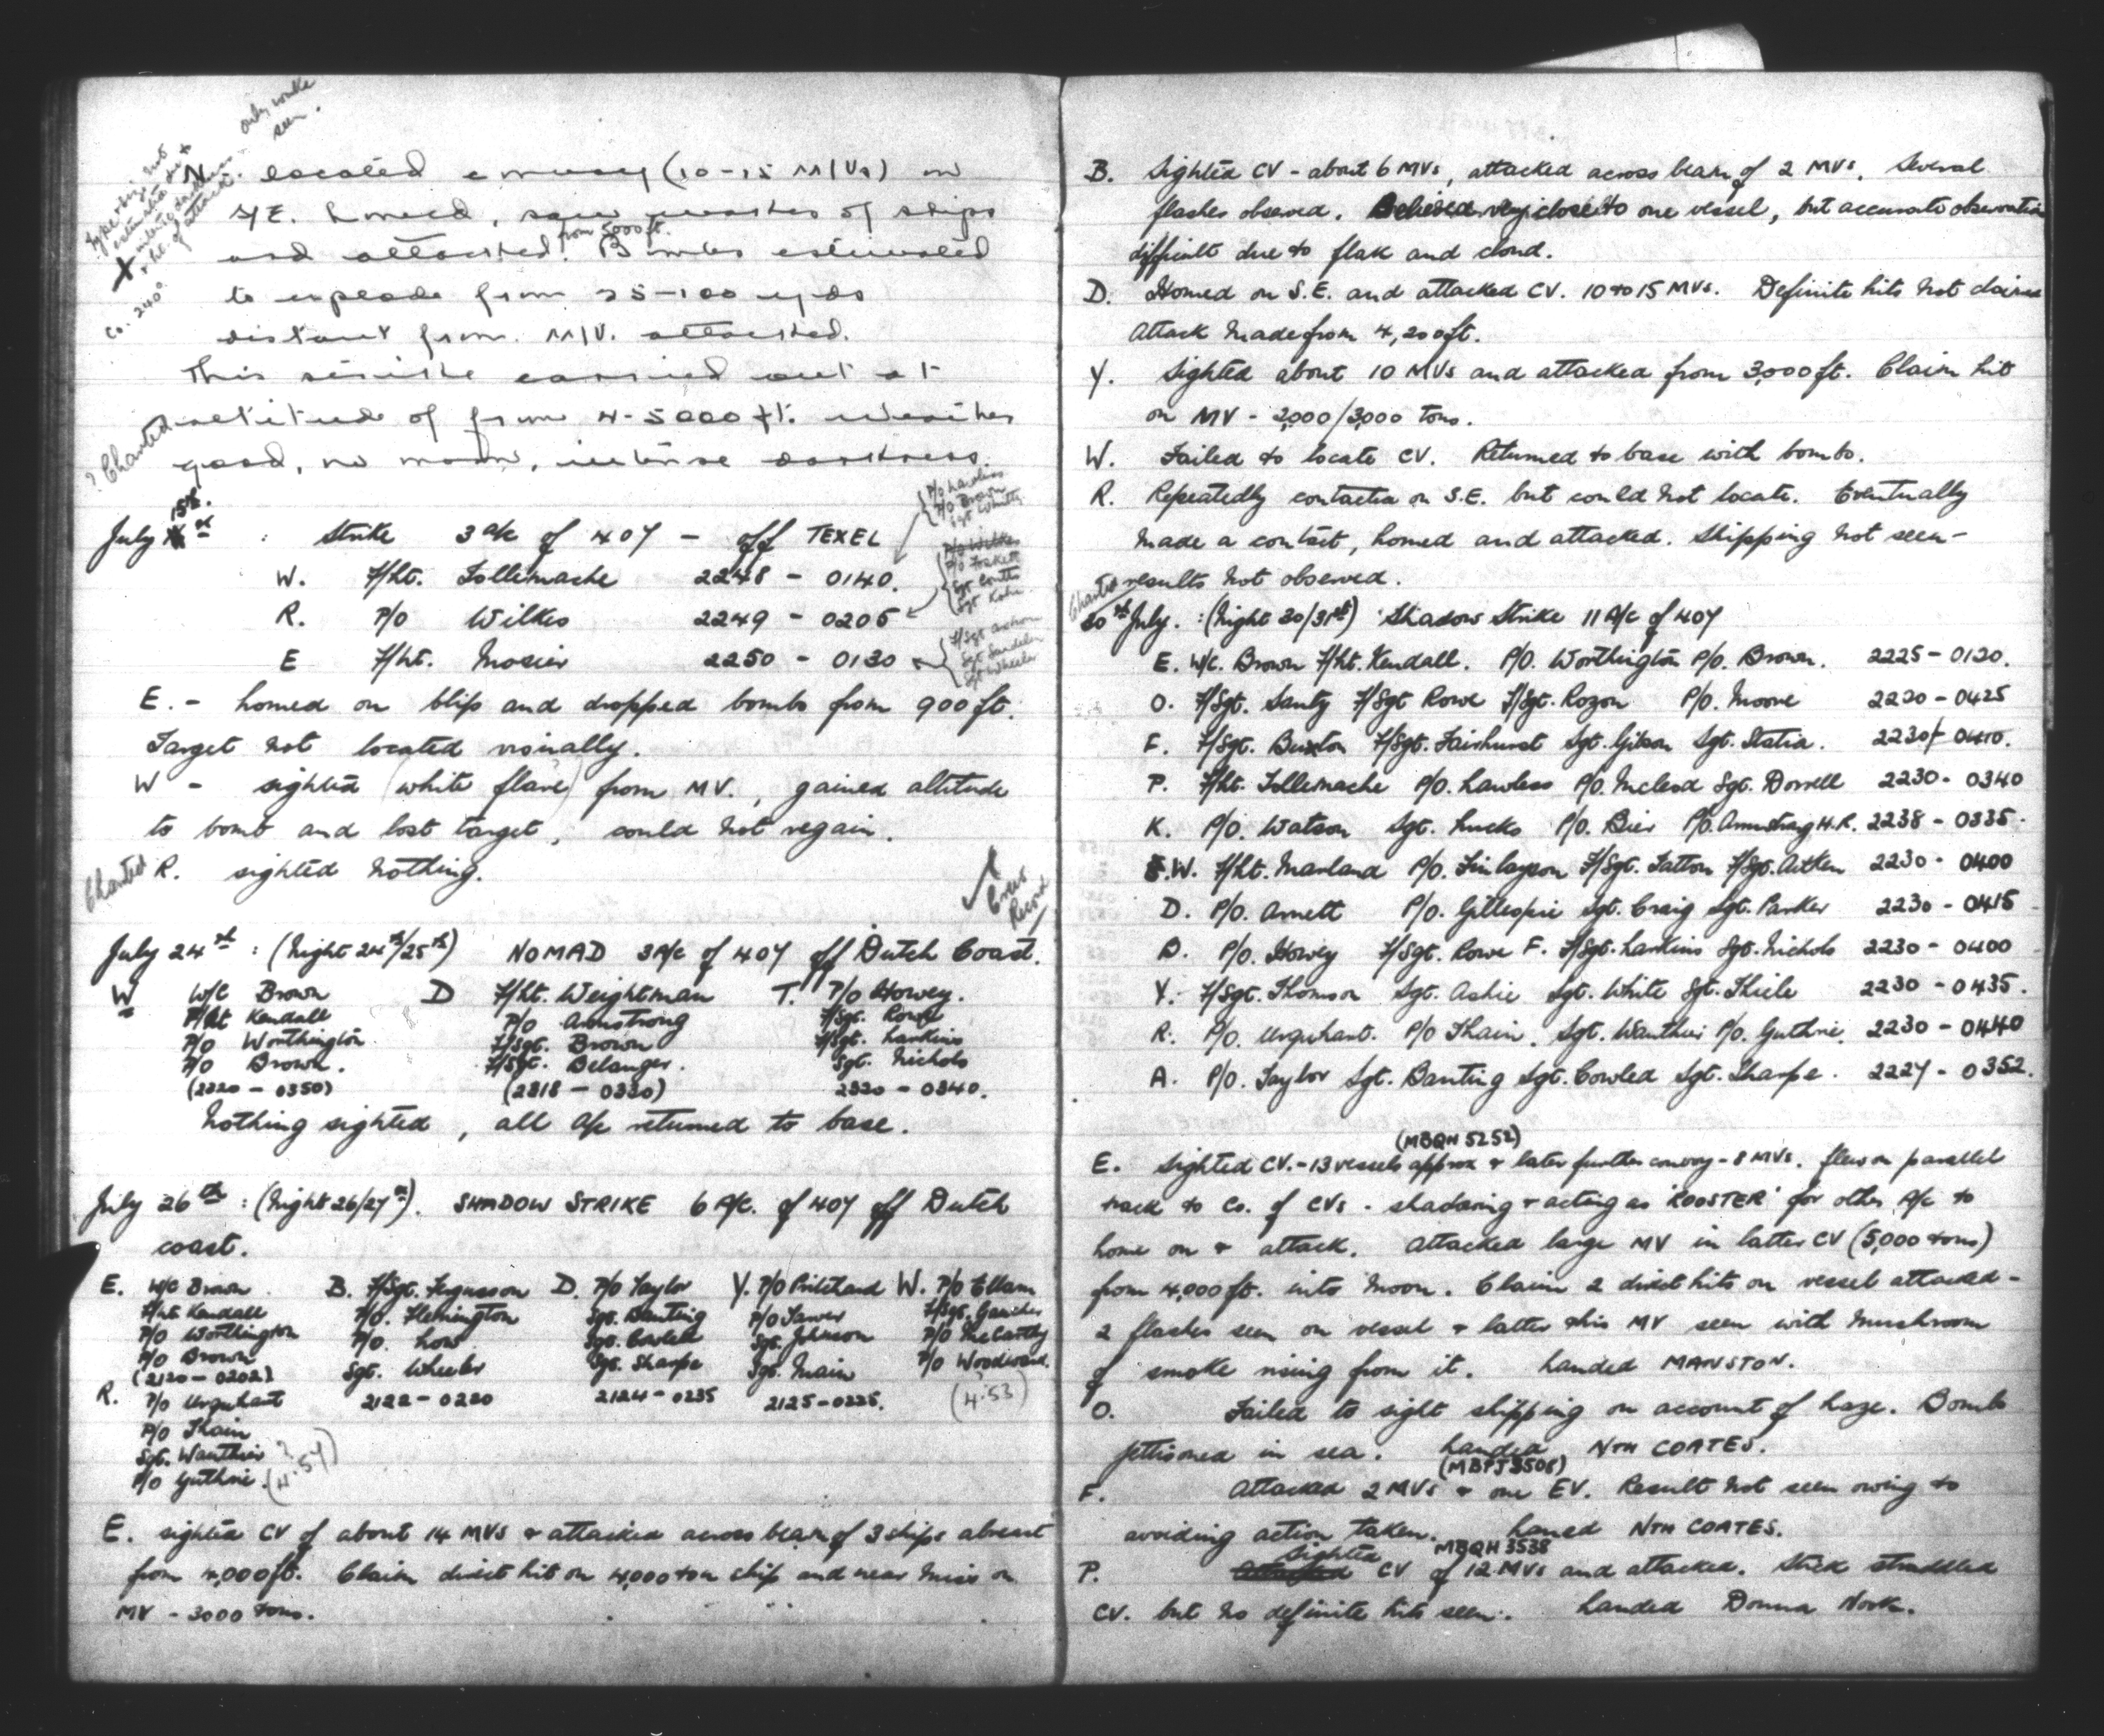 only wake
seen.
N. located convoy (10-15 M/Vs) on
S/E. homed, saw washes of ships
and attacked from 5000 ft. Bombs estimated
to explode from 25-100 yds
distant from M/V. attacked.
Co. 240°
This strike carried out at
altitude of from 4-5000 ft. weather
good, no moon, intense darkness.
? Charted
July 15th : Strike 3 a/c of 407 - off TEXEL
W. F/Lt. Tollemache 2248 - 0140.
R. P/O Wilkes 2249 - 0205
E F/Lt. Mosier 2250 - 0130
P/O Lawless
P/O Brown
Sgt. Coutts
Sgt Sandelin
Sgt Wheeler
E. - homed on blip and dropped bombs from 900 ft.
Target not located visually.
W - sighted (white flare) from MV., gained altitude
to bomb and lost target, could not regain.
Charted R. sighted nothing.
July 24th : (Night 24th/25th) NOMAD 3 A/c of 407 off Dutch Coast.
W W/C Brown D F/Lt. Weightman T. P/O Howey.
F/Lt Kendall P/O Armstrong F/Sgt. Rowe
P/O Worthington F/Sgt. Brown F/Sgt. Larkins
P/O Brown. F/Sgt. Belanger. Sgt. Nichols
(2320 - 0350) (2318 - 0330) 2320 - 0340.
Nothing sighted, all A/c returned to base.
July 26th : (Night 26/27th). SHADOW STRIKE 6 A/c. of 407 off Dutch
coast.
E. W/C Brown B. F/Sgt. Fergusson D. P/O Taylor Y. P/O Pritchard W. P/O Ellam
F/Lt Kendall P/O. Flemington Sgt. Banting P/O Sawer F/Sgt. Gaucher
P/O Worthington P/O. Low Sgt. Cowled Sgt. Johnson P/O McCarthy
P/O Brown Sgt. Wheeler Sgt. Sharpe Sgt. Main P/O Woodward.
(2120 - 0202) 2122 - 0220 2124 - 0235 2125 - 0225. (4:53)
R. P/O Urquhart
P/O Thain
Sgt. Wauthier ?
P/O Guthrie. (4:54)
E. sighted CV of about 14 MVs & attacked across beam of 3 ships abreast
from 4,000 ft. Claim direct hit on 4,000 ton ship and near miss on
MV - 3000 tons.
B. Sighted CV - about 6 MVs, attacked across beam of 2 MVs. Several
flashes observed. Believed very close to one vessel, but accurate observation
difficult due to flak and cloud.
D. Homed on S.E. and attacked CV. 10 to 15 MVs. Definite hits not claimed
Attack made from 4,200 ft.
Y. Sighted about 10 MVs and attacked from 3,000 ft. Claim hit
on MV - 2,000/3,000 tons.
W. Failed to locate CV. Returned to base with bombs.
R. Repeatedly contacted on S.E. but could not locate. Eventually
made a contact, homed and attacked. Shipping not seen -
results not observed.
Charted
30th July. : (Night 30/31st) Shadow Strike 11 A/c of 407
E. W/C. Brown F/Lt. Kendall. P/O. Worthington P/O. Brown. 2225 - 0120.
O. F/Sgt. Santy F/Sgt Rowe F/Sgt. Rozon P/O. Moore 2220 - 0425
F. F/Sgt. Buxton F/Sgt. Fairhurst Sgt. Gibson Sgt. Statia. 2230 - 0410.
P. F/Lt. Tollemache P/O. Lawless P/O. McLeod Sgt. Dorrell 2230 - 0340
K. P/O. Watson Sgt. Lucks P/O. Bier P/O. Armstrong H.R. 2238 - 0335.
W. F/Lt. Marland P/O. Finlayson F/Sgt. Tatton F/Sgt. Aitken 2230 - 0400
D. P/O. Arnett P/O. Gillespie Sgt. Craig Sgt. Parker 2230 - 0415
B. P/O. Howey F/Sgt. Rowe F. F/Sgt. Larkins Sgt. Nichols 2230 - 0400
Y. F/Sgt. Thomson Sgt. Ashie Sgt. White Sgt. Thiele 2230 - 0435.
R. P/O. Urquhart. P/O Thain. Sgt. Wauthier P/O. Guthrie. 2230 - 0440
A. P/O. Taylor Sgt. Banting Sgt. Cowled Sgt. Sharpe. 2227 - 0352.
(MBQH 5252)
E. Sighted CV. - 13 vessels approx & later further convoy - 8 MVs. flew on parallel
track to Co. of CVs - shadowing & acting as 'ROOSTER' for other A/c to
home on & attack. Attacked large MV in latter CV (5,000 tons)
from 4,000 ft. into moon. Claim 2 direct hits on vessel attacked -
2 flashes seen on vessel & latter this MV seen with mushroom
of smoke rising from it. Landed MANSTON.
O. Failed to sight shipping on account of haze. Bombs
jettisoned in sea. Landed Nth COATES.
(MBPJ 3505)
F. Attacked 2 MVs & one EV. Result not seen owing to
avoiding action taken. Landed Nth COATES.
MBQH 3538
P. Sighted CV of 12 MVs and attacked. Stick straddled
CV. but no definite hits seen. Landed Donna Nook.